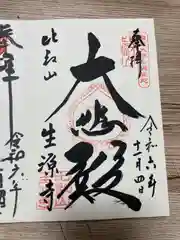 奉拝
令和六年
十一月四日
大悲殿
比叡山
生源寺
奉拝
令和六年